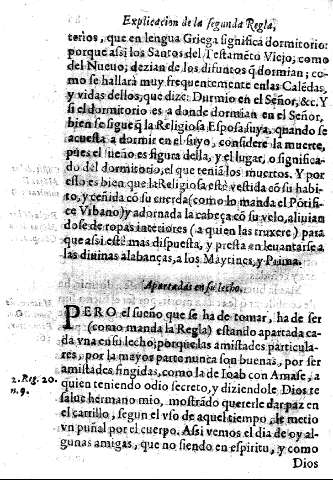 Explicacion de la segunda Regla,
terios, que en lengua Griega significa dormitorio:
porque assi los Santos del Testamẽto Viejo, como
del Nueuo; dezian de los difuntos q̃ dormian; co-
mo se hallarà muy frequentemente en las Calẽdas,
y vidas dellos, que dize: Durmio en el Señor, &c. Y
si el dormitorio es a donde dormian en el Señor,
bien se sigue q̃ la Religiosa Esposa suya, quando se
acuesta a dormir en el suyo, considere la muerte,
pues el sueño es figura della, y el lugar, o significa-
do del dormitorio, el que teniã los muertos. Y por
esto es bien que la Religiosa estè vestida cõ su habi-
to, y ceñida cõ su cuerda (como lo manda el Põtifi-
ce Vrbano) y adornada la cabeça cõ su velo, aliuian
dose de ropas interiores (a quien las truxere) para
que assi estè mas dispuesta, y presta en leuantarse a
las diuinas alabanças, a los Maytines, y Prima.
Apartadas en su lecho.
PERO el sueño que se ha de tomar, ha de ser
(como manda la Regla) estando apartada ca-
da vna en su lecho, porque las amistades particula-
res, por la mayor parte nunca son buenas, por ser
amistades fingidas, como la de Ioab con Amase, a
2. Reg. 20.
n. 9.
quien teniendo odio secreto, y diziendole Dios te
salue hermano mio, mostrãdo quererle dar paz en
el carrillo, segun el vso de aquel tiempo, le metio
vn puñal por el cuerpo. Assi vemos el dia de oy al-
gunas amigas, que no siendo en espiritu, y como
Dios